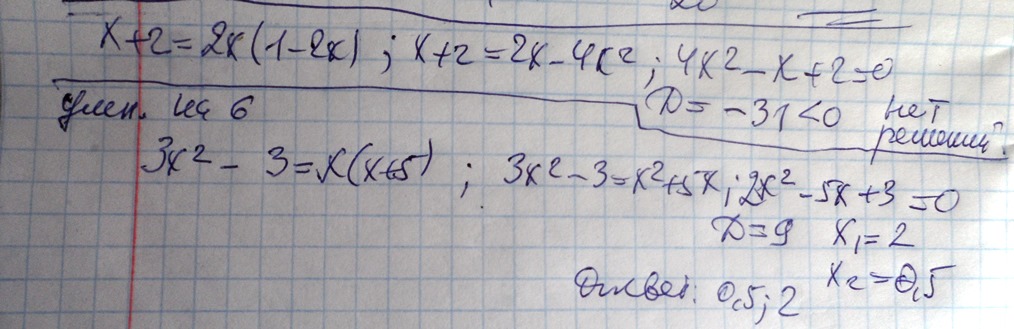 x+2=2x(1-2x) ; x+2=2x-4x² ; 4x²-x+2=0
D=-31<0 нет решений.
умн. на 6
3x² - 3=x(x+5) ; 3x²-3=x²+5x ; 2x²-5x+3=0
D=9 x₁=2
x₂=0,5
Ответ: 0,5; 2